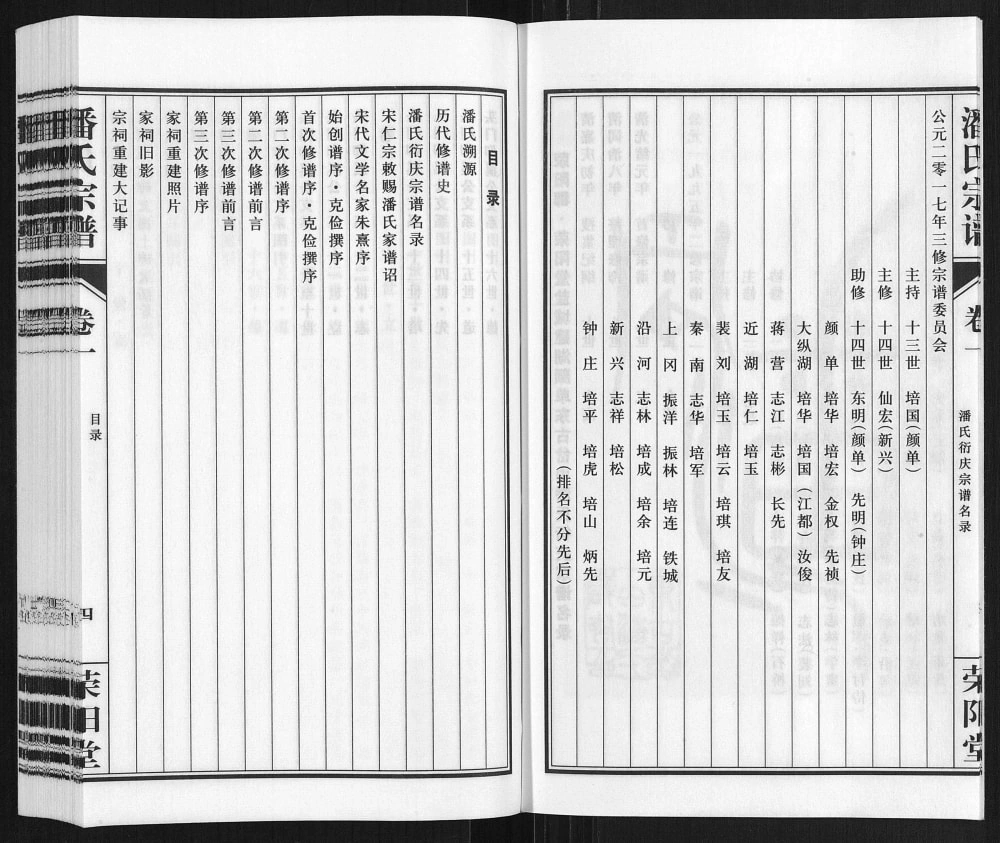 潘氏宗谱
卷一
潘氏衍庆宗谱名录
荣阳堂
公元二零一七年三修宗谱委员会
主持 十三世 培国(颜单)
主修 十四世 仙宏(新兴)
助修 十四世 东明(颜单) 先明(钟庄)
颜单 培华 培宏 金权 先祯
大纵湖 培华 培国(江都) 汝俊
蒋营 志江 志彬 长先
近湖 培仁 培玉
裴刘 培玉 培云 培琪 培友
秦南 志华 培军
上冈 振洋 振林 培连 铁城
沿河 志林 培成 培余 培元
新兴 志祥 培松
钟庄 培平 培虎 培山 炳先
(排名不分先后)
目录
潘氏溯源
历代修谱史
潘氏衍庆宗谱名录
宋仁宗敕赐潘氏家谱诏
宋代文学名家朱熹序
始创谱序·克俭撰序
首次修谱序·克俭撰序
第二次修谱序
第二次修谱前言
第三次修谱前言
第三次修谱序
家祠重建照片
家祠旧影
宗祠重建大记事
潘氏宗谱
卷一
目录
四
荣阳堂